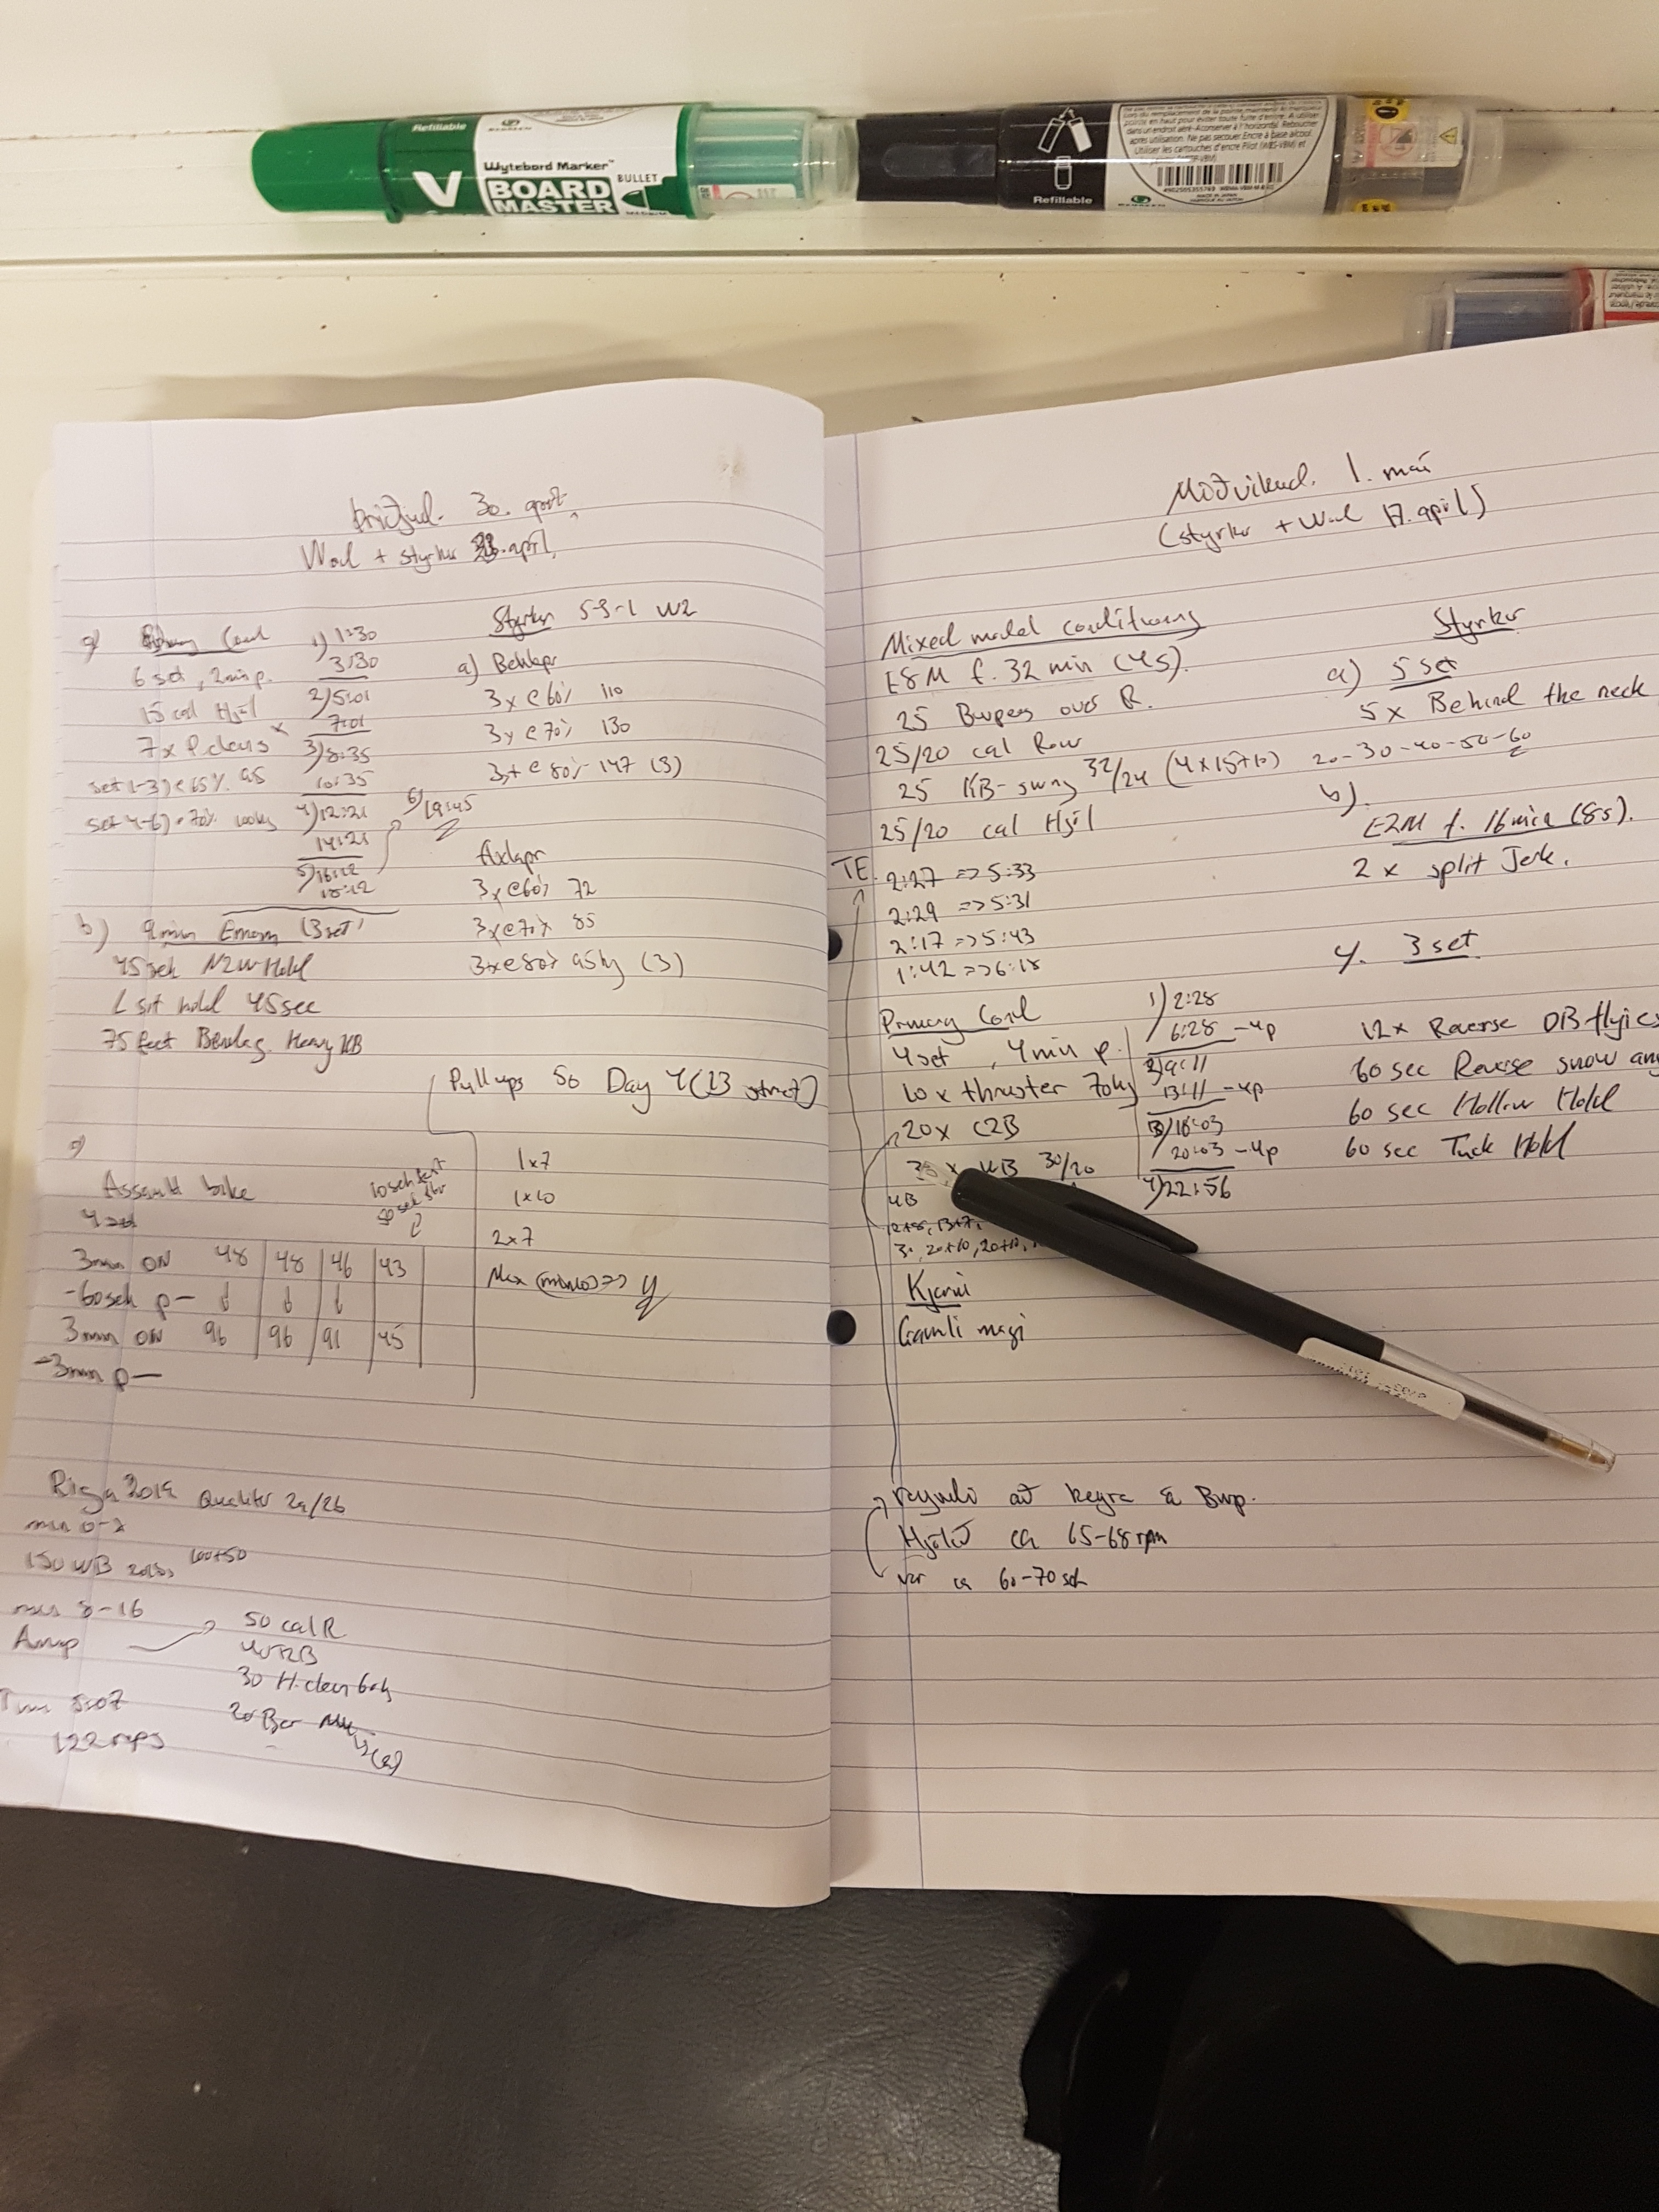 Refillable
BEGREEN
Wytebord Marker
V BOARD
MASTER
BULLET
MEDIUM
Refillable
BEGREEN
Þriðjud. 30. apríl
Wod + styrkur apríl
a) Primary Cond
6 set, 2min p.
15 cal Hjól
7 x P.cleans
set 1-3) @ 65% 95
set 4-6) @ 70%
1) 1:30
3:30
2) 5:01
7:01
3) 8:35
10:35
4) 12:21
14:21
5) 16:12
18:12
6) 19:45
Styrkur 5-3-1 W2
a) Bekkpr
3 x @ 60% 110
3 x @ 70% 130
3+ @ 80% 147 (3)
Axlapr
3 x @ 60% 72
3 x @ 70% 85
3 x @ 80% 95kg (3)
b) 9 min Emom (3 set)
45 sek N2W Hold
L sit hold 45 sec
75 feet Heavy KB
Pull ups 50 Day 4 (23 strict)
1x7
1x10
2x7
Max => 4
Assault bike
4 set
3 min ON 48 48 46 43
-60 sek p-
3 min ON 96 96 91 45
-3 min p-
Riga 2019 Qualifier 2a/2b
min 0-8
150 WB 100+50
min 8-16
Amrap
50 cal R
40 T2B
30 H.clean
20 Bar MU
Time 5:07
122 reps
Miðvikud. 1. maí
(styrkur + Wod 17. apríl)
Mixed model conditioning
E8M f. 32 min (4s).
25 Burpees over R.
25/20 cal Row
25 KB-swing 32/24 (4x15+10)
25/20 cal Hjól
TE
2:27 => 5:33
2:29 => 5:31
2:17 => 5:43
1:42 => 6:18
Primary Cond
4 set, 4 min p.
10 x thruster 70kg
20 x C2B
WB 30/20
UB
12+8, 13+7,
30, 20+10, 20+10,
1) 2:28
6:28 -4p
2) 9:11
13:11 -4p
3) 16:03
20:03 -4p
4) 22:56
Kjarni
Gamli magi
Styrkur
a) 5 set
5 x Behind the neck
20-30-40-50-60
b)
E2M f. 16 min (8s).
2 x split Jerk.
3 set
12 x Reverse DB flyies
60 sec Reverse snow
60 sec Hollow Hold
60 sec Tuck Hold
Reyndi að keyra á Burp.
Hjólið ca 65-68 rpm
var ca 60-70 sek